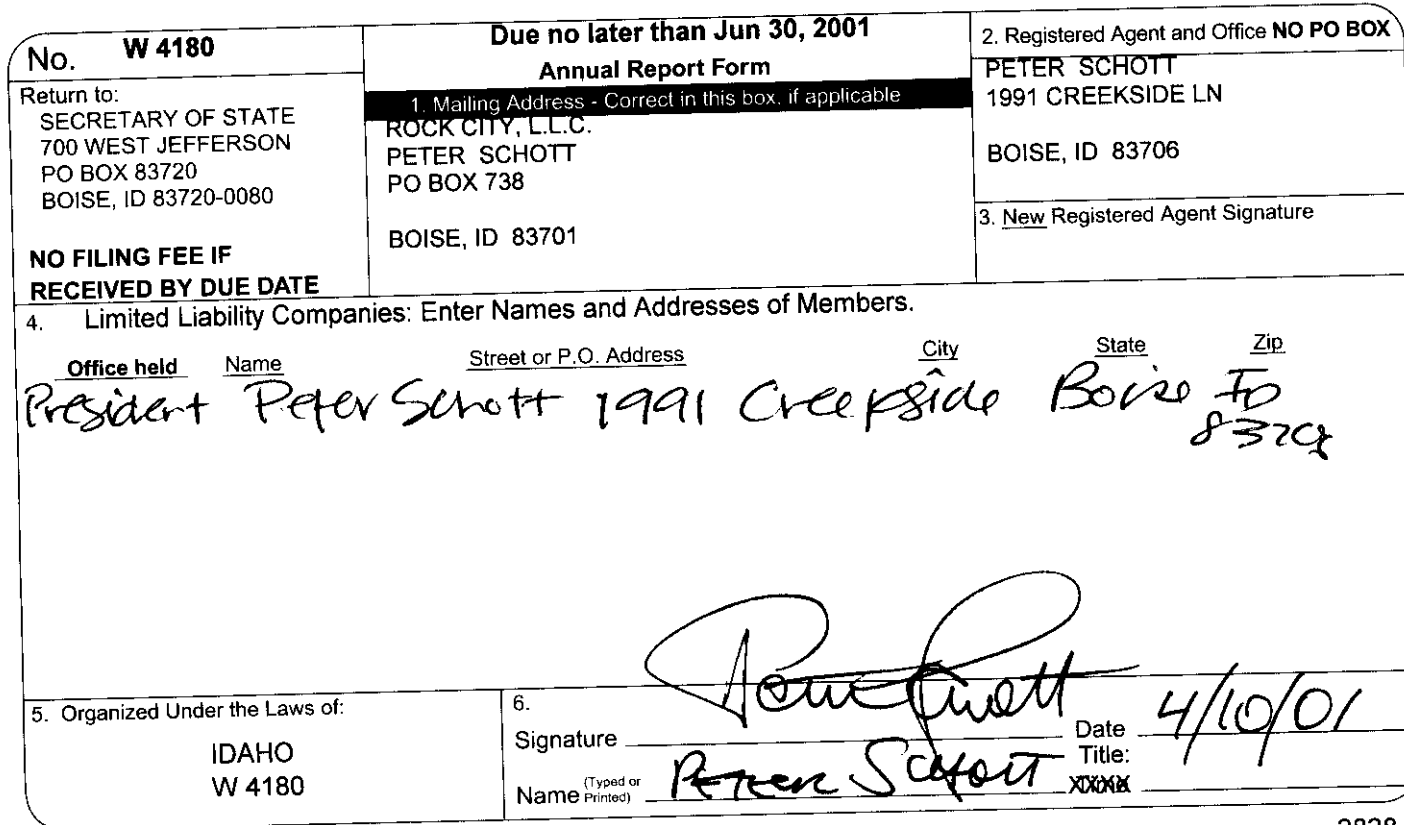 No. W 4180
Return to:
SECRETARY OF STATE
700 WEST JEFFERSON
PO BOX 83720
BOISE, ID 83720-0080
NO FILING FEE IF
RECEIVED BY DUE DATE
Due no later than Jun 30, 2001
Annual Report Form
1. Mailing Address - Correct in this box, if applicable
ROCK CITY, L.L.C.
PETER SCHOTT
PO BOX 738
BOISE, ID 83701
2. Registered Agent and Office NO PO BOX
PETER SCHOTT
1991 CREEKSIDE LN
BOISE, ID 83706
3. New Registered Agent Signature
4. Limited Liability Companies: Enter Names and Addresses of Members.
Office held Name Street or P.O. Address City State Zip
President Peter Schott 1991 Creekside Boise ID
5. Organized Under the Laws of:
IDAHO
W 4180
6.
Signature Date 4/10/01
Title:
Name (Typed or Printed) PETER SCHOTT